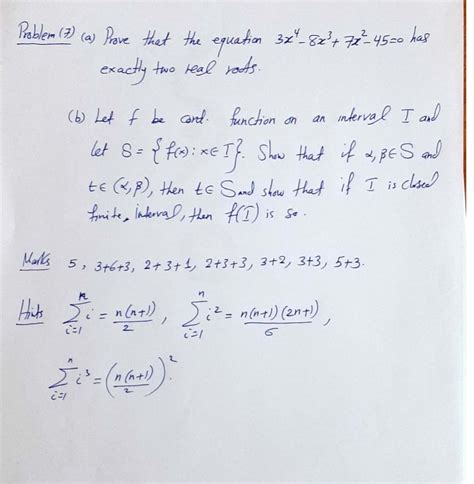 Problem (7) (a) Prove that the equation 3x⁴-8x³+7x²-45=0 has
exactly two real roots.
(b) Let f be cont. function on an interval I and
let S = { f(x) : x ∈ I }. Show that if α, β ∈ S and
t ∈ (α, β), then t ∈ S and show that if I is closed
finite, interval, then f(I) is so.
Marks 5, 3+6+3, 2+3+1, 2+3+3, 3+2, 3+3, 5+3.
Hints \sum_{i=1}^{n} i = \frac{n(n+1)}{2}, \sum_{i=1}^{n} i² = \frac{n(n+1)(2n+1)}{6},
\sum_{i=1}^{n} i³ = (\frac{n(n+1)}{2})².